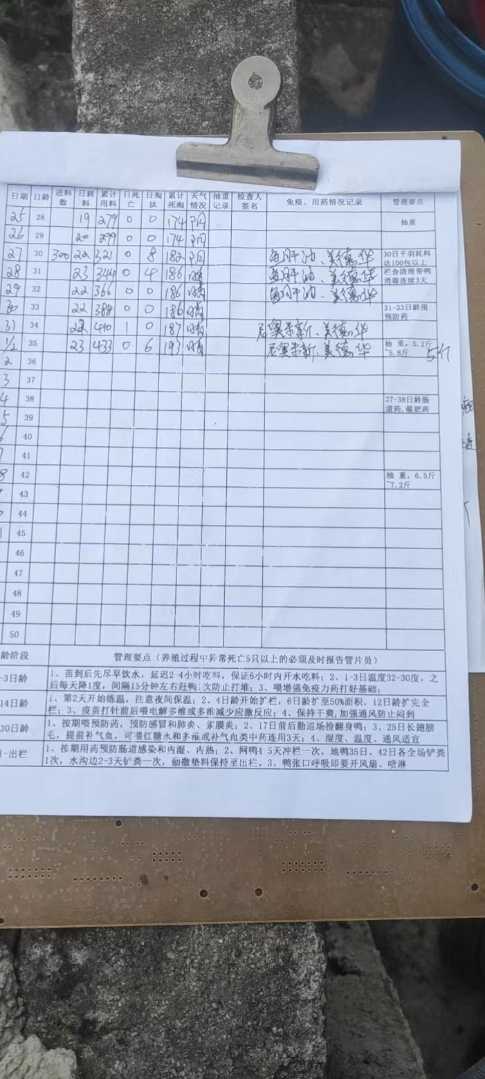 日期 日龄 进料数 日耗料 累计用料 日死亡 日淘汰 累计死淘 天气情况 抽重记录 检查人签名 免疫、用药情况记录 管理要点
25 28 19 279 0 0 174 阴 抽重
26 29 20 299 0 0 174 阴
27 30 300 22 321 0 8 182 阴 鱼肝油、美德华 30日千羽耗料达100包以上
28 31 23 344 0 4 186 晴 鱼肝油、美德华 栏舍清理带鸭消毒连续3天
29 32 22 366 0 0 186 晴 鱼肝油、美德华
30 33 22 388 0 0 186 晴 31-33日龄预防药
31 34 22 410 1 0 187 晴 美德华
1/2 35 23 433 0 6 193 晴 美德华 抽重,5.2斤-5.8斤 5斤
2 36
3 37
4 38 27-38日龄肠道药,催肥药
5 39
6 40
7 41
8 42 抽重,6.5斤-7.2斤
9 43
44
45
46
47
48
49
50
龄阶段 管理要点(养殖过程中异常死亡5只以上的必须及时报告管片员)
-3日龄 1、苗到后先尽早饮水,延迟2-4小时吃料,保证6小时内开水吃料;2、1-3日温度32-30度,之
后每天降1度,间隔15分钟左右赶鸭1次防止打堆;3、喂增强免疫力药打好基础;
14日龄 1、第2天开始练温,注意夜间保温;2、4日龄开始扩栏,6日龄扩至50%面积,12日龄扩完全
栏;3、疫苗打针前后喂电解多维或多维减少应激反应;4、保持干爽,加强通风防止闷到
30日龄 1、按期喂预防药,预防感冒和肺炎、浆膜炎;2、17日前后勤巡场捡翻身鸭;3、25日长翅
毛,提前补气血,可要红糖水和多维或补气血类中药连用3天;4、湿度、温度、通风适宜
-出栏 1、按期用药预防肠道感染和内湿、内热;2、网鸭4-5天冲栏一次,地鸭35日、42日各全场铲粪
1次,水沟边2-3天铲粪一次,勤撒垫料保持至出栏,3、鸭张口呼吸即要开风扇、喷淋